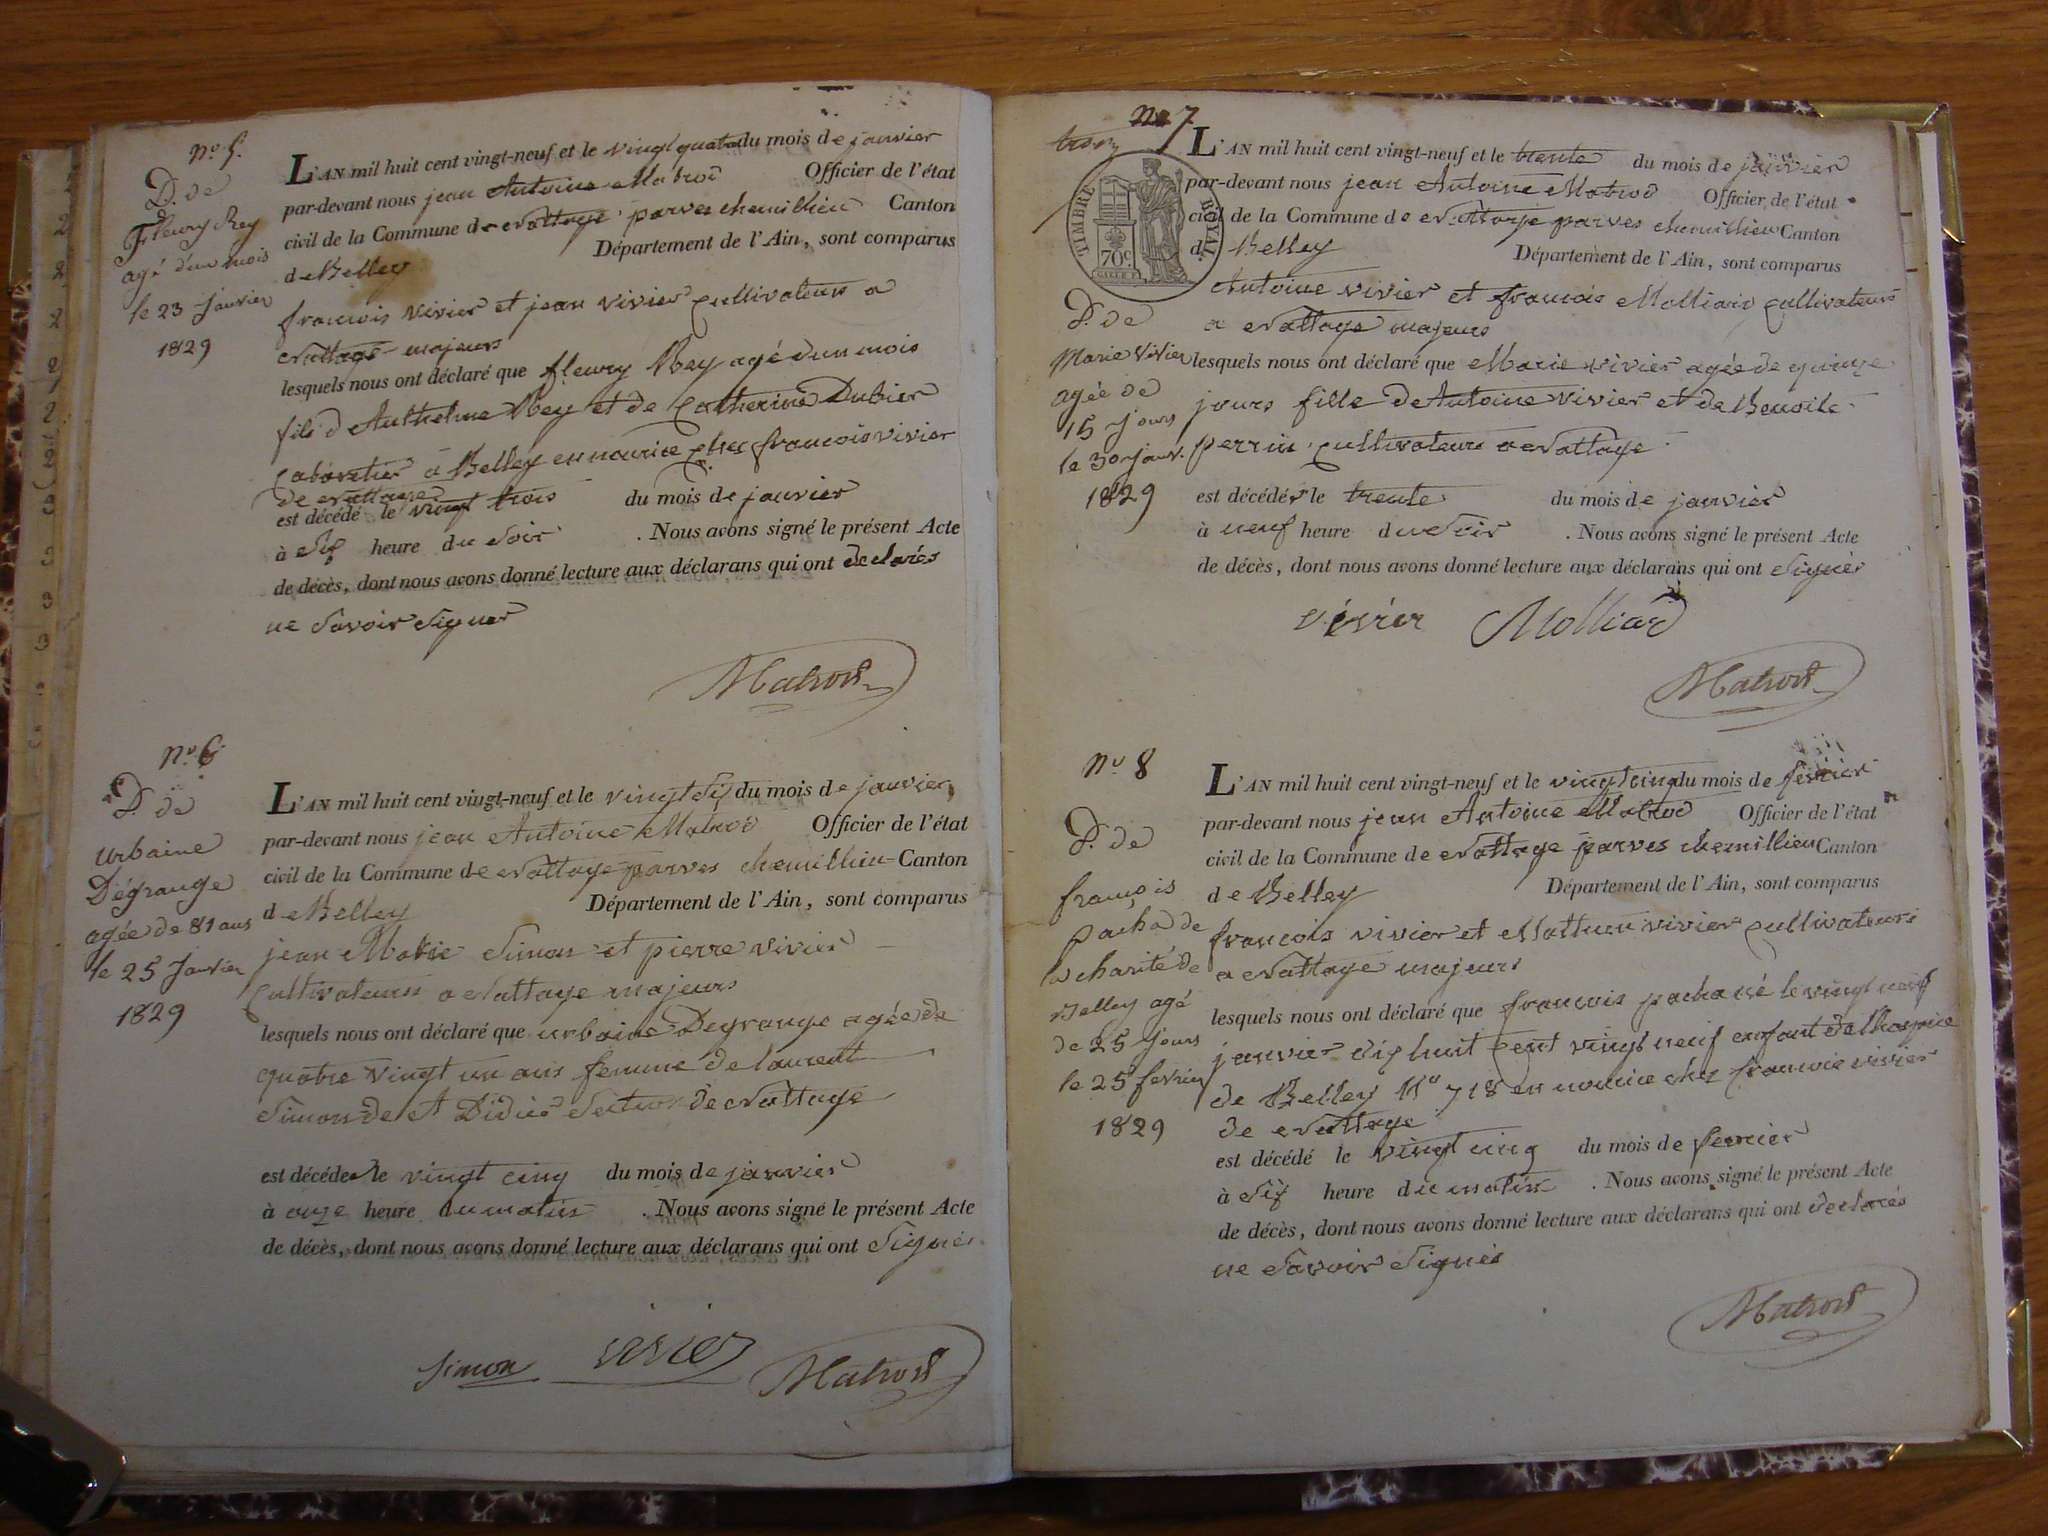 No 5.
D. de
Fleury Rey
agé d'un mois
le 23 Janvier
1829
L'AN mil huit cent vingt-neuf et le vingt quatre du mois de janvier
par-devant nous jean Antoine Matrod Officier de l'état
civil de la Commune de nattage parves chemillieu Canton
de Belley Département de l'Ain, sont comparus
francois vivier et jean vivier cultivateurs a
nattage majeurs
lesquels nous ont déclaré que fleury Rey agé d'un mois
fils d Anthelme Rey et de Catherine Dubier
Cabaretier a Belley en nourice chez francois vivier
de nattage
est décédé le vingt trois du mois de janvier
à Six heure du Soir . Nous avons signé le présent Acte
de décès, dont nous avons donné lecture aux déclarans qui ont declarés
ne Savoir Signer
Matrod
No 6
D. de
Urbaine
Dégrange
agée de 81 ans
le 25 Janvier
1829
L'AN mil huit cent vingt-neuf et le vingt Six du mois de janvier
par-devant nous jean Antoine Matrod Officier de l'état
civil de la Commune de nattage parves chemillieu Canton
de Belley Département de l'Ain, sont comparus
jean Simon et pierre vivier
Cultivateurs a nattage majeurs
lesquels nous ont déclaré que urbaine Degrange agée de
quatre vingt un ans femme de laurent
Simon de St Didier Section de nattage
est décédée le vingt cinq du mois de janvier
à onze heure du matin . Nous avons signé le présent Acte
de décès, dont nous avons donné lecture aux déclarans qui ont Signés
Simon vivier Matrod
No 7
TIMBRE ROYAL
70c.
L'AN mil huit cent vingt-neuf et le trente du mois de janvier
par-devant nous jean Antoine Matrod Officier de l'état
civil de la Commune de nattage parves chemillieu Canton
de Belley Département de l'Ain, sont comparus
Antoine vivier et francois Molliard cultivateurs
a nattage majeurs
D. de
Marie Vivier
agée de
15 Jours
le 30 Janv.
1829
lesquels nous ont déclaré que Marie vivier agée de quinze
jours fille de Antoine vivier et de Benoite
perrin cultivateurs a nattage
est décédée le trente du mois de janvier
à neuf heure du Soir . Nous avons signé le présent Acte
de décès, dont nous avons donné lecture aux déclarans qui ont Signés
vivier Molliard
Matrod
No 8
D. de
françois
pacha de
la charité de
Belley agé
de 25 Jours
le 25 fevrier
1829
L'AN mil huit cent vingt-neuf et le vingt cinq du mois de fevrier
par-devant nous jean Antoine Matrod Officier de l'état
civil de la Commune de nattage parves chemillieu Canton
de Belley Département de l'Ain, sont comparus
francois vivier et vivier cultivateurs
a nattage majeurs
lesquels nous ont déclaré que francois pacha né le vingt neuf
janvier dix huit Cent vingt neuf enfant de lhospice
de Belley No 718 en nourice chez francois vivier
de nattage
est décédé le vingt cinq du mois de fevrier
à Six heure du matin . Nous avons signé le présent Acte
de décès, dont nous avons donné lecture aux déclarans qui ont declarés
ne Savoir Signés
Matrod